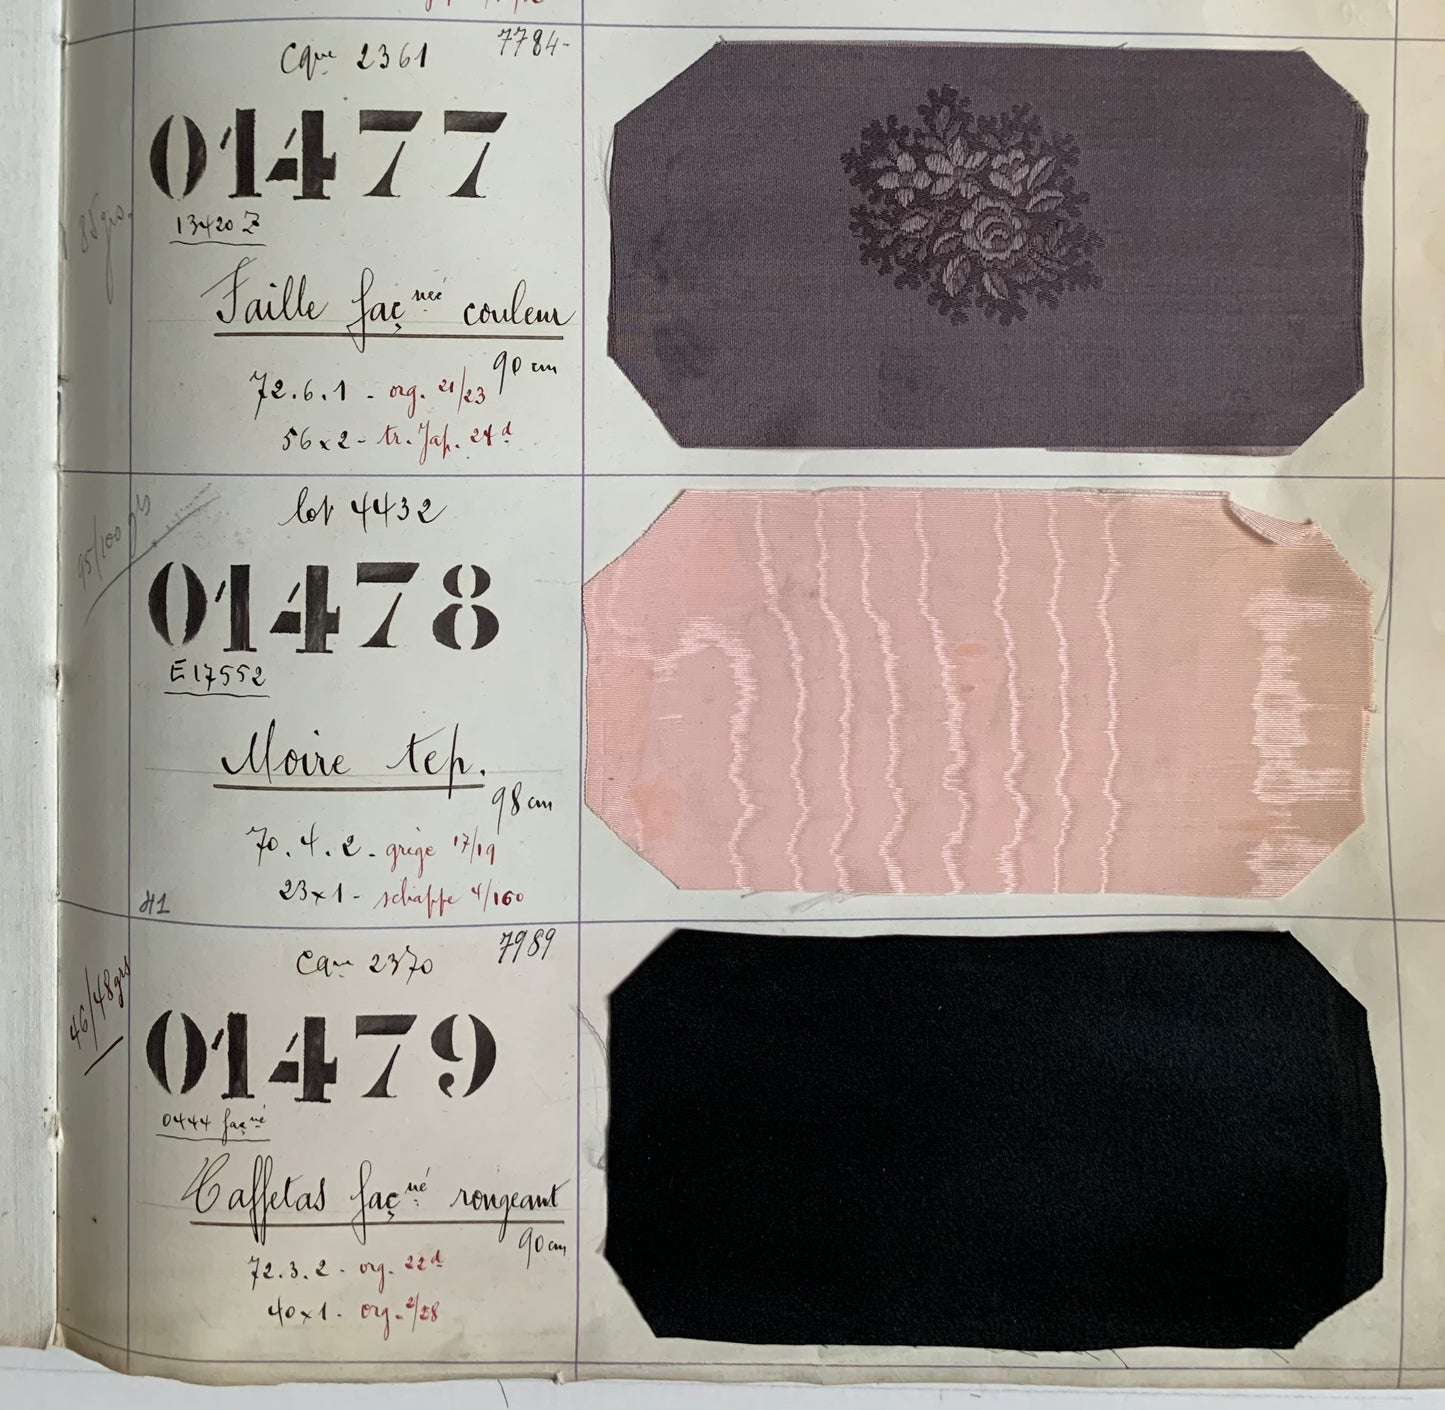 Cque 2361
7784-
01477
13420 Z
85 grs.
Faille façnée couleur
90 cm
72.6.1 - org. 21/23
56x2 - tr. Jap. 24d
lot 4432
95/100 grs
01478
E17552
Moire tep.
98 cm
70.4.2 - grège 17/19
23x1 - schappe 4/160
41
Cque 2370
7989
46/48 grs
01479
0444 façné
Taffetas façné rongeant
90 cm
72.3.2 - org. 22d
40x1 - org. 2/28